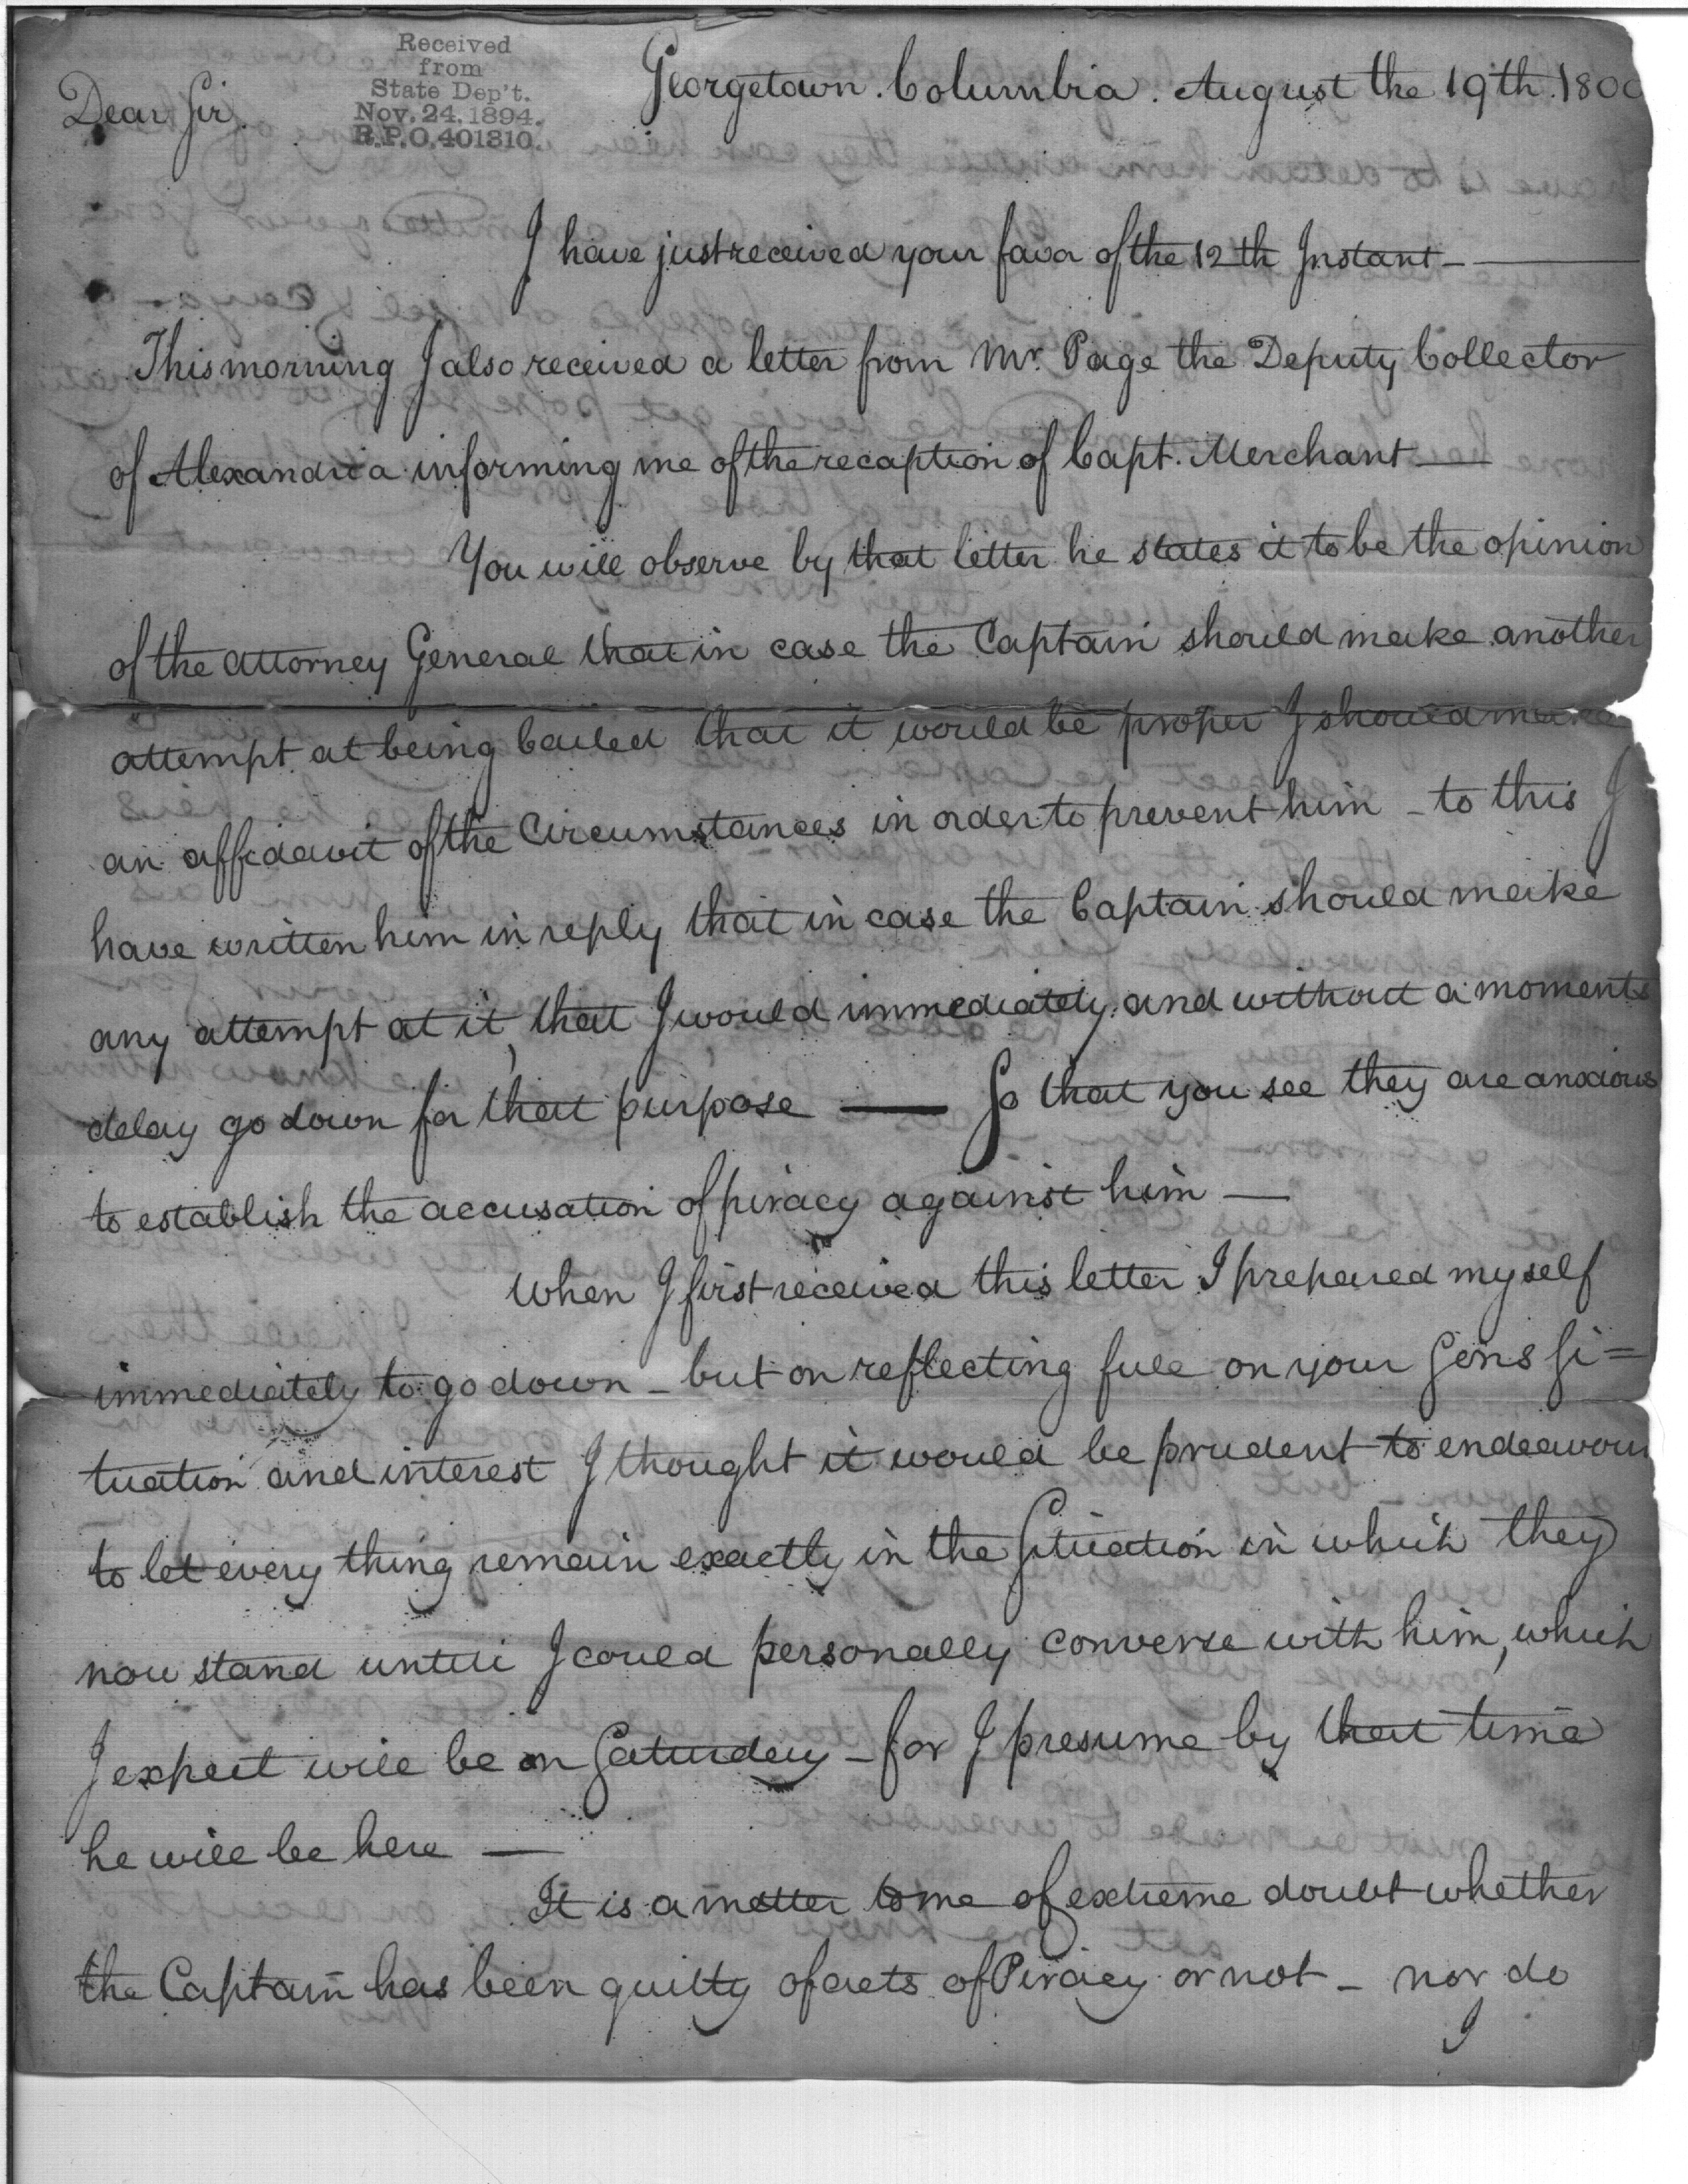 Received
from
State Dep't.
Nov. 24. 1894.
R.P.O. 401310.
Georgetown. Columbia. August the 19th. 1800
Dear Sir.
I have just received your favor of the 12th Instant —
This morning I also received a letter from Mr. Page the Deputy Collector
of Alexandria informing me of the recaption of Capt. Merchant —
You will observe by that letter he states it to be the opinion
of the attorney General that in case the Captain should make another
attempt at being bailed that it would be proper I should make
an affidavit of the Circumstances in order to prevent him – to this I
have written him in reply that in case the Captain should make
any attempt at it, that I would immediately, and without a moments
delay go down for that purpose — So that you see they are anxious
to establish the accusation of piracy against him —
When I first received this letter I prepared myself
immediately to go down – but on reflecting full on your Sons Si=
tuation and interest I thought it would be prudent to endeavour
to let every thing remain exactly in the Situation in which they
now stand until I could personally converse with him, which
I expect will be on Saturday – for I presume by that time
he will be here —
It is a matter to me of extreme doubt whether
the Captain has been guilty of acts of Piracy or not – nor do
I